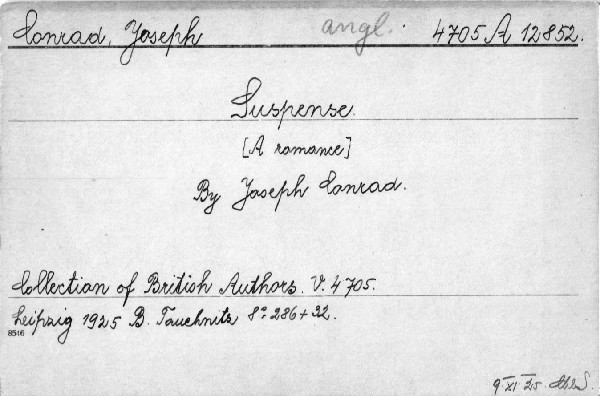 Conrad, Joseph angl. 4705 A 12852.
Suspense.
[A romance]
By Joseph Conrad.
Collection of British Authors. V. 4705.
Leipzig 1925 B. Tauchnitz 8° 286+32.
8516
9. XI. 25.